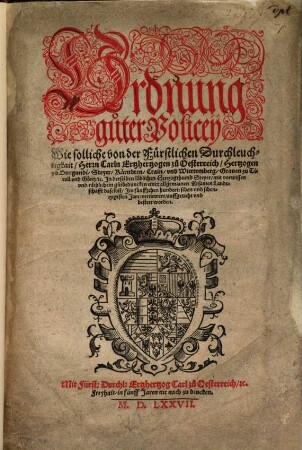 Ordnung
gůter Policey
Wie solliche von der Fürstlichen Durchleuch-
tigkait / Herrn Carln Ertzhertzogen zů Oesterreich / Hertzogen
zů Burgundi / Steyer / Kärndten / Crain / und Wierttemberg / Graven zu Ty-
roll und Görtz /c. In derselben löblichen Hertzogthumb Steyer / mit vorwissen
und Lande-
schafft daselbst / Im fünfftzehen hundert siben und siben-
tzigisten Jar auffgericht und
worden.
Mit Fürst: Durchl: Ertzhertzog Carl zů Oesterreich /c.
Freyhait / in fünff Jaren nit nach zu drucken.
M. D. LXXVII.